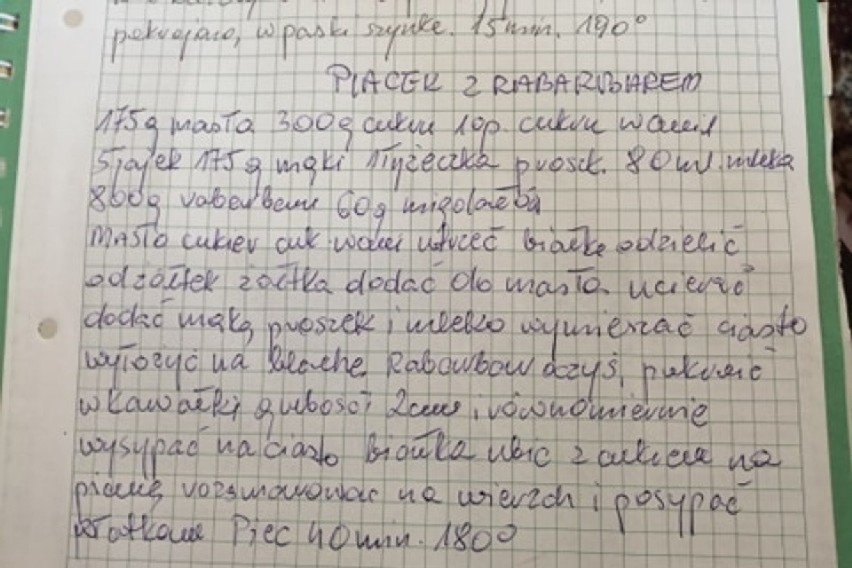 pokrojaro, w paski szynkę. 15 min. 190°
PLACEK Z RABARBAREM
175g masła 300g cukru 1op. cukru wanil
5 jajek 175g mąki 1łyżeczka proszk. 80ml mleka
800g rabarbaru 60g migdałów
Masło cukier cuk wanil utrzeć białka odzielić
od żółtek żółtka dodać do masła ucierać
dodać mąkę proszek i mleko wymieszać ciasto
wyłożyć na blachę Rabarbar oczyś, pokroić
w kawałki grubości 2cm i równomiernie
wysypać na ciasto białka ubić z cukrem na
pianę rozsmarować na wierzch i posypać
płatkami Piec 40 min. 180°